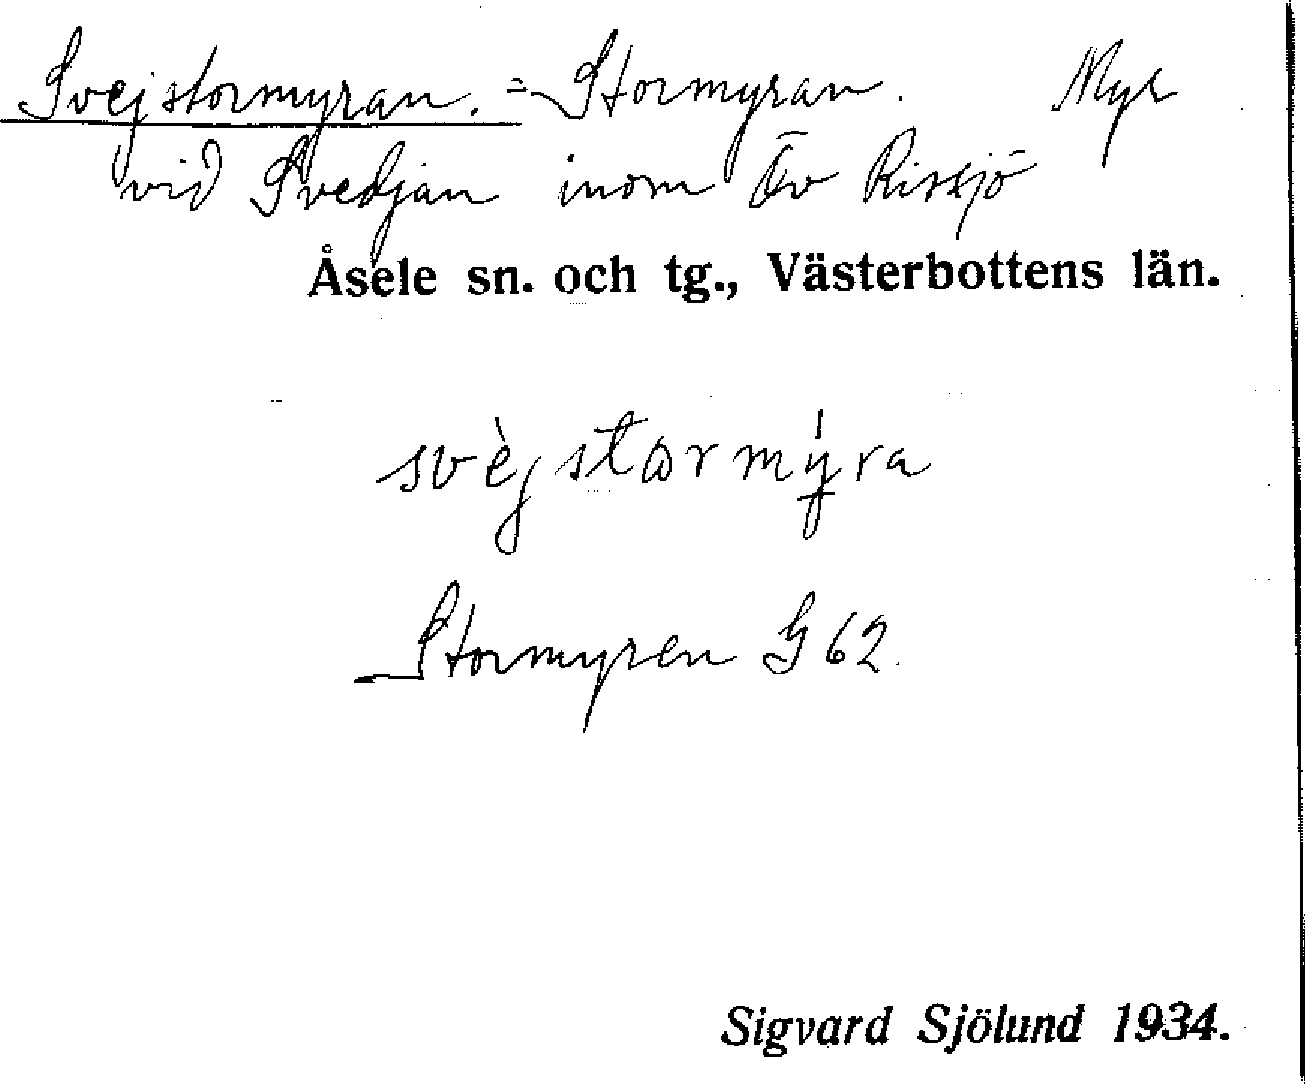 Svejstormyran. = Stormyran. Myr
vid Svedjan inom Öv Rissjö
Åsele sn. och tg., Västerbottens län.
svèjstormýra
Stormyren G 62.
Sigvard Sjölund 1934.